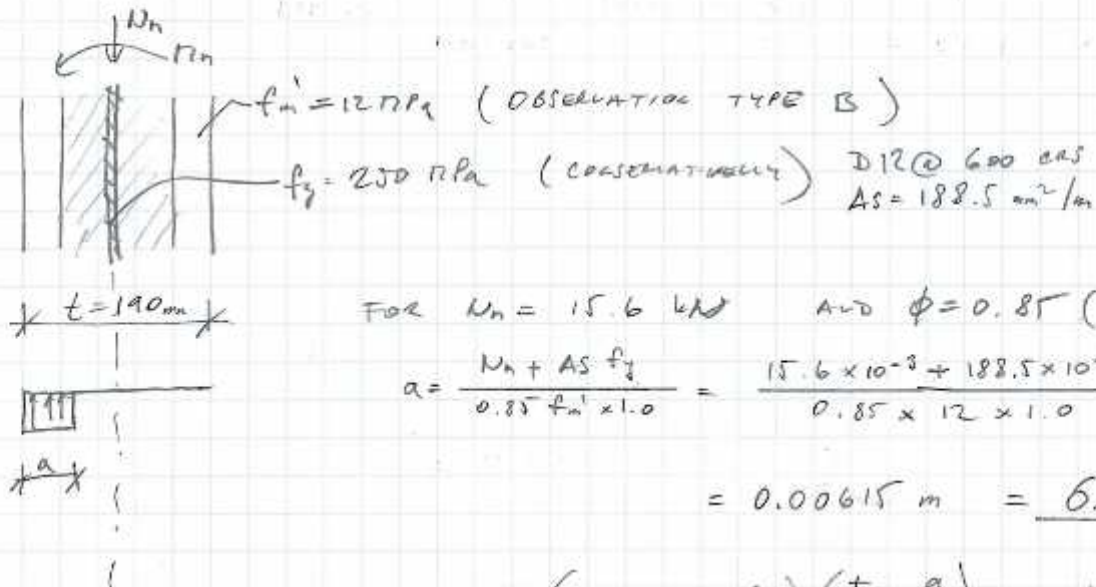 Nn
Mn
fm' = 12 MPa (OBSERVATION TYPE B)
fy = 250 MPa (CONSERVATIVELY) D12 @ 600 CRS
AS = 188.5 mm²/m
t = 190mm FOR Nn = 15.6 kN AND ϕ = 0.85 (
a = Nn + AS fy / 0.85 fm' x 1.0 = 15.6 x 10⁻³ + 188.5 x 10 / 0.85 x 12 x 1.0
a
= 0.00615 m = 6.
( ) ( t - a )